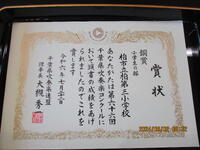 賞状
銅賞
小学生の部
柏市立柏第三小学校
あなたがたは第六十六回
千葉県吹奏楽コンクールに
おいて頭書の成績をあげ
られましたのでこれを
賞します
令和六年七月三十日
千葉県吹奏楽連盟
理事長 大槻秀